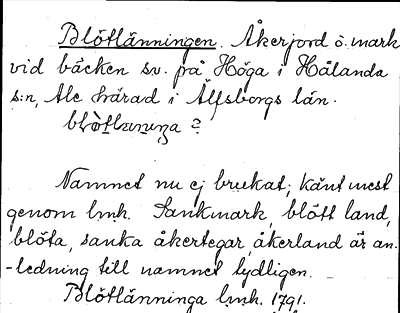 Blötlänningen. Åkerjord o. mark
vid bäcken sv. på Höga i Hålanda
s:n, Ale härad i Älfsborgs län.
Namnet nu ej brukat; känt mest
genom lmh. Sankmark, blött land,
blöta, sanka åkertegar, åkerland är an-
-ledning till namnet tydligen.
Blötlänninga lmh. 1791.